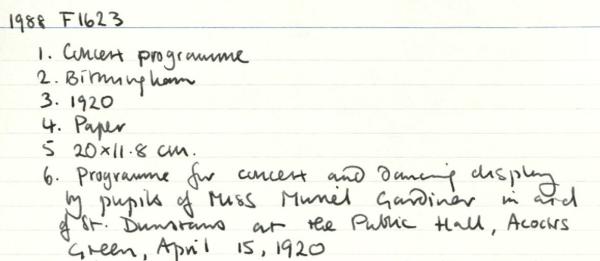 1988 F1623
1. Concert programme
2. Birmingham
3. 1920
4. Paper
5 20x11.8 cm.
6. Programme for concert and dancing display
by pupils of Miss Muriel Gardiner in aid
of St. Dunstans at the Public Hall, Acocks
Green, April 15, 1920